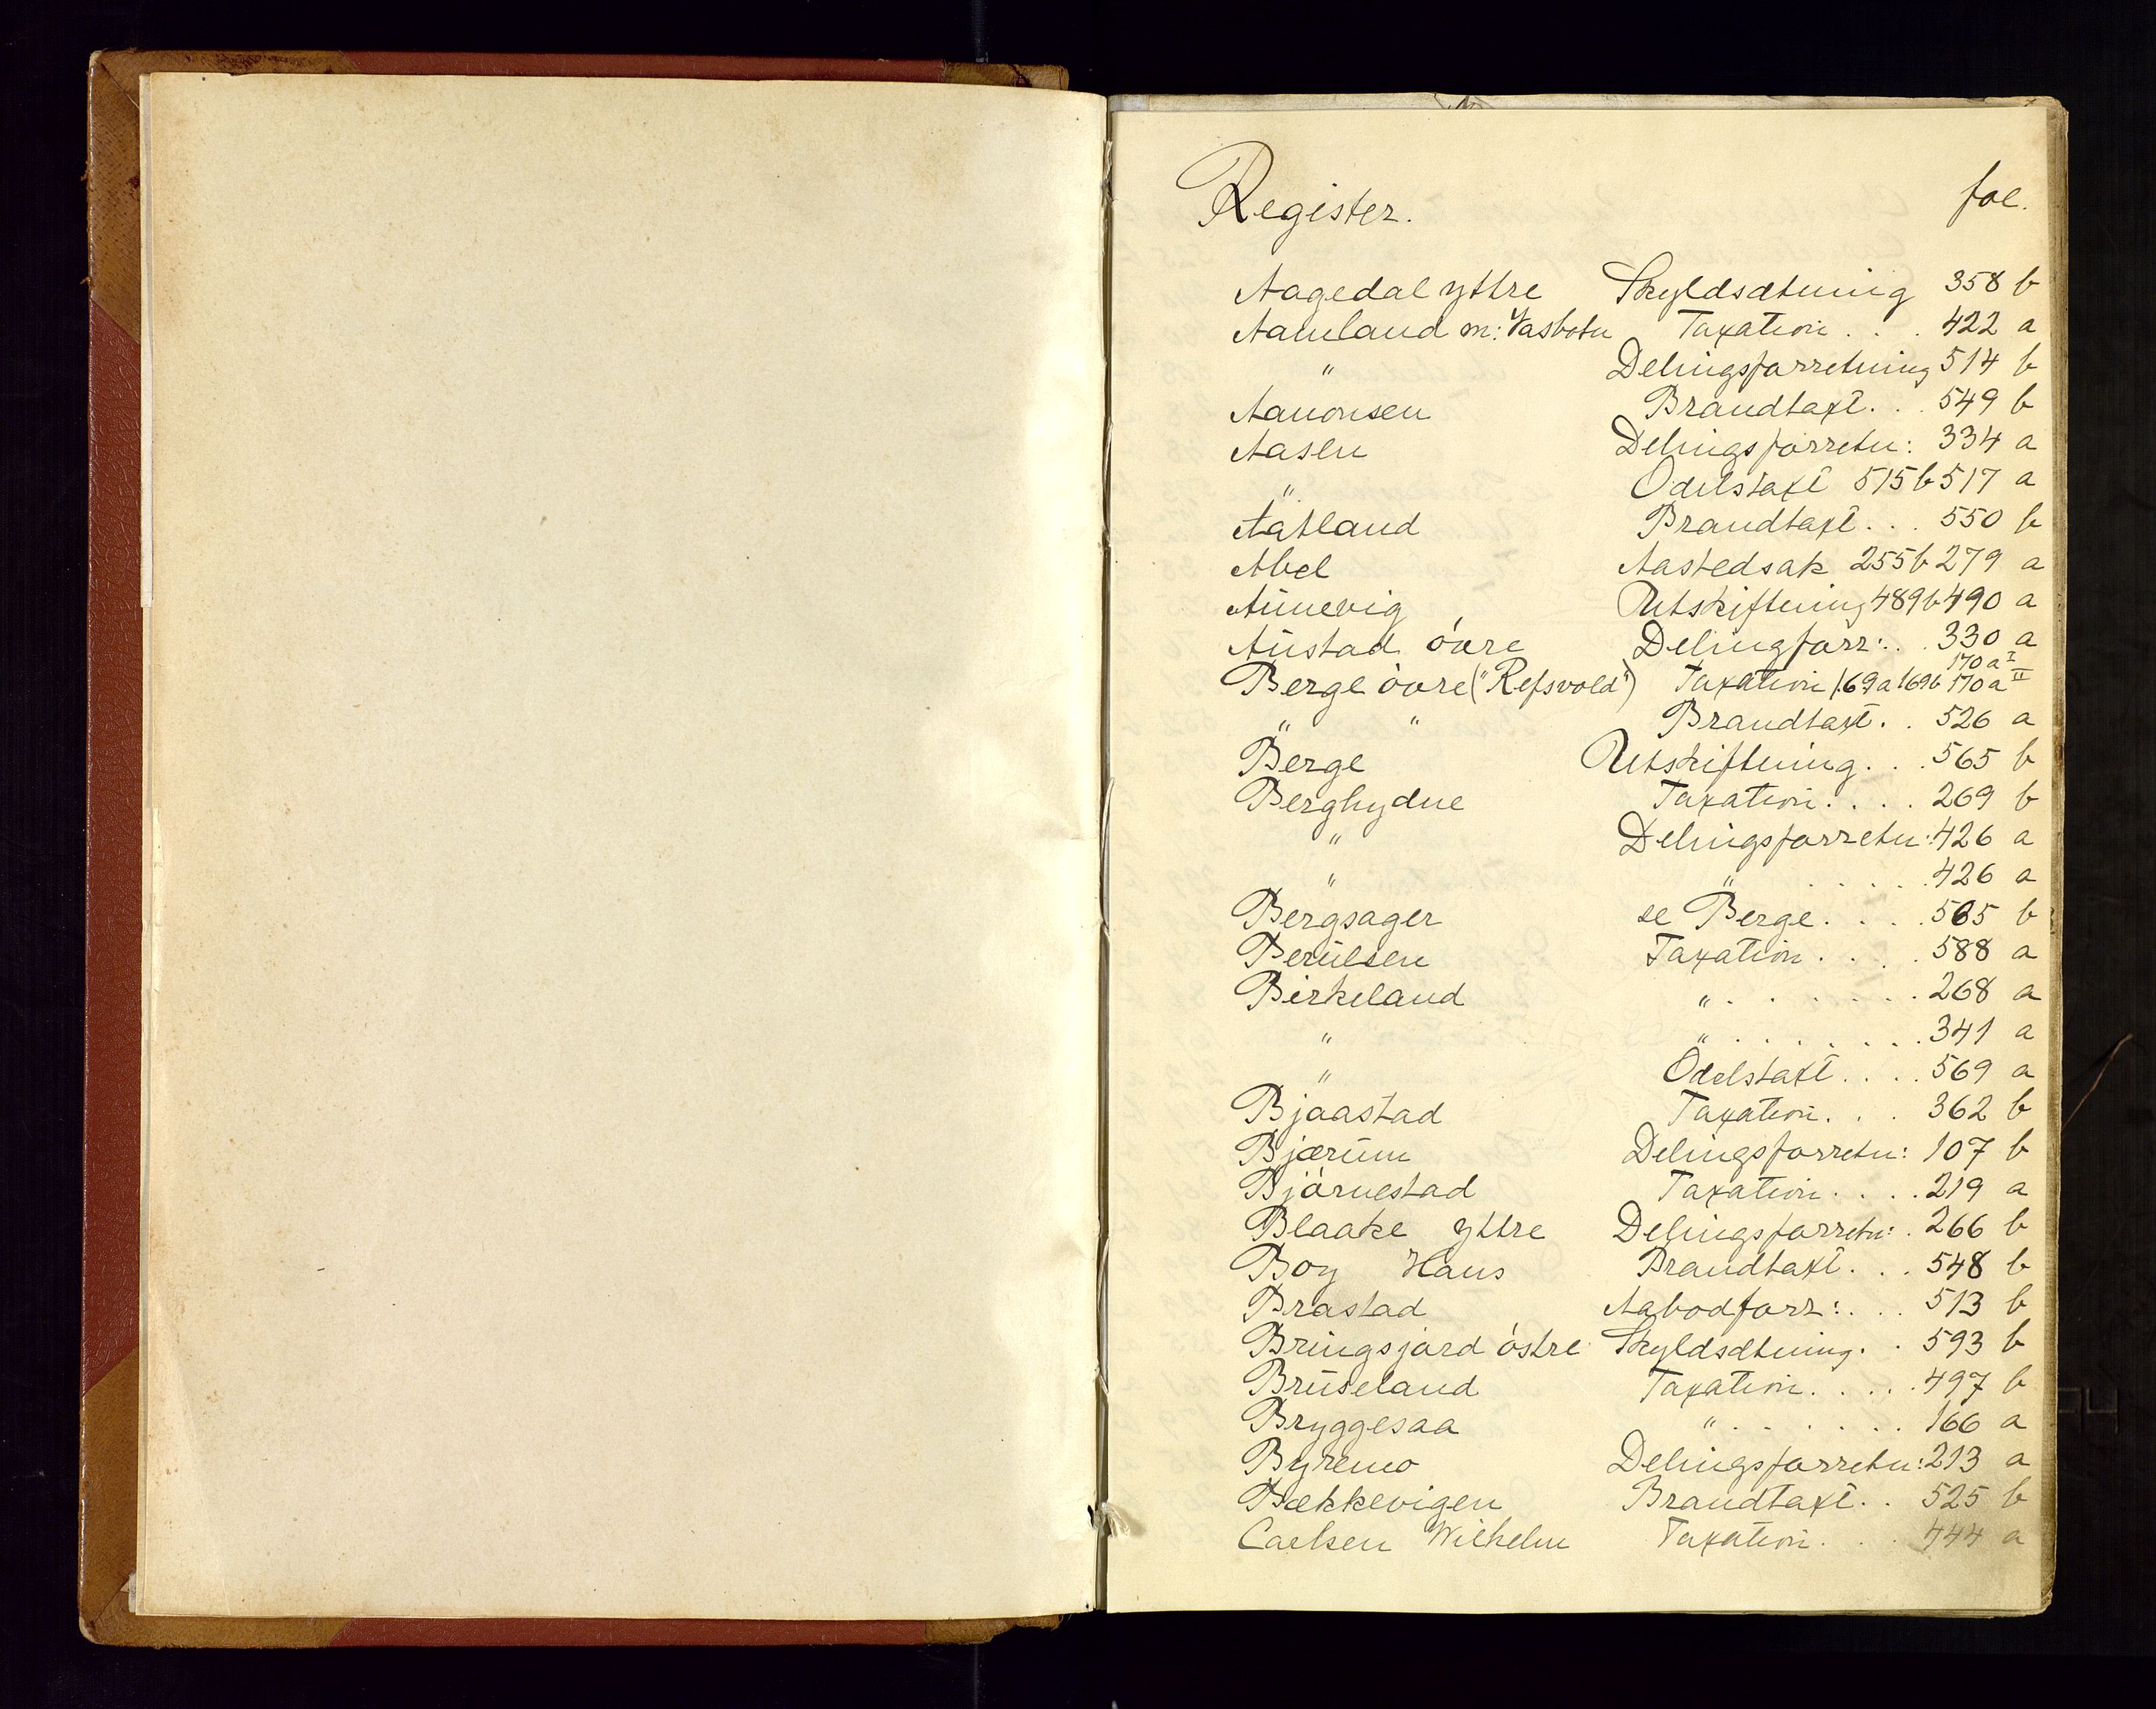 Register. fol.
Aagedal yttre Skyldsætning 358 b
Aamland m: Vasbotn Taxation . . . 422 a
" Delingsforretning 514 b
Aanonsen Brandtaxt. . . 549 b
Aasen Delingsforretn: 334 a
" Odelstaxt 515 b 517 a
Aatland Brandtaxt. . . 550 b
Abel Aastedsak 255 b 279 a
Aunevig Utskiftning 489 b 490 a
Austad övre Delingforr: . . 330 a
170 a I
Berge övre ("Refsvold") Taxation 169 a 169 b 170 a II
" " Brandtaxt. . . 526 a
Berge Utskiftning. . . 565 b
Berghydne Taxation. . . . 269 b
" Delingsforretn: 426 a
" " . . . . . 426 a
Bergsager se Berge. . . . 565 b
Berulsen Taxation . . . . 588 a
Birkeland " . . . . . . . 268 a
" " . . . . . . . 341 a
" Odelstaxt . . . . 569 a
Bjaastad Taxation. . . 362 b
Bjærum Delingsforretn: 107 b
Björnestad Taxation. . . . 219 a
Blaake yttre Delingsforretn: . 266 b
Boy Hans Brandtaxt. . . 548 b
Brastad Aabodforr: . . . 513 b
Bringsjord östre Skyldsætning. . 593 b
Bruseland Taxation. . . . . 497 b
Bryggesaa " . . . . . . . 166 a
Byremo Delingsforretn: 213 a
Bækkevigen Brandtaxt. . . 525 b
Carlsen Wilhelm Taxation. . . . 444 a